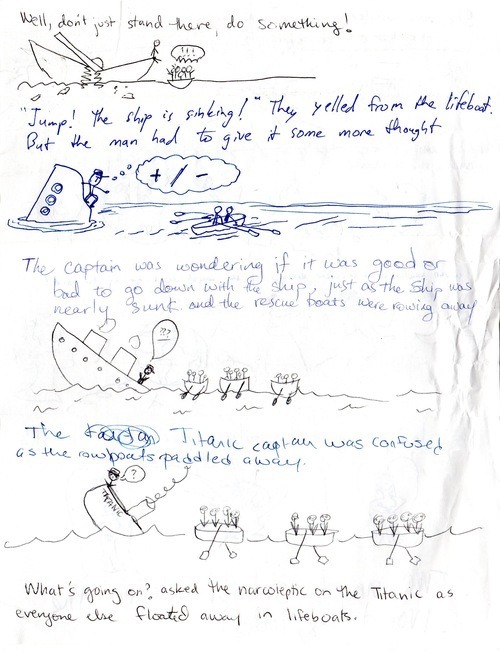 Well, don't just stand there, do something!
!!!!
"Jump! The ship is sinking!" They yelled from the lifeboat.
But the man had to give it some more thought
+ / -
The captain was wondering if it was good or
bad to go down with the ship, just as the ship was
nearly sunk and the rescue boats were rowing away
???
The Titanic captain was confused
as the rowboats paddled away.
?
TITANIC
What's going on? asked the narcoleptic on the Titanic as
everyone else floated away in lifeboats.